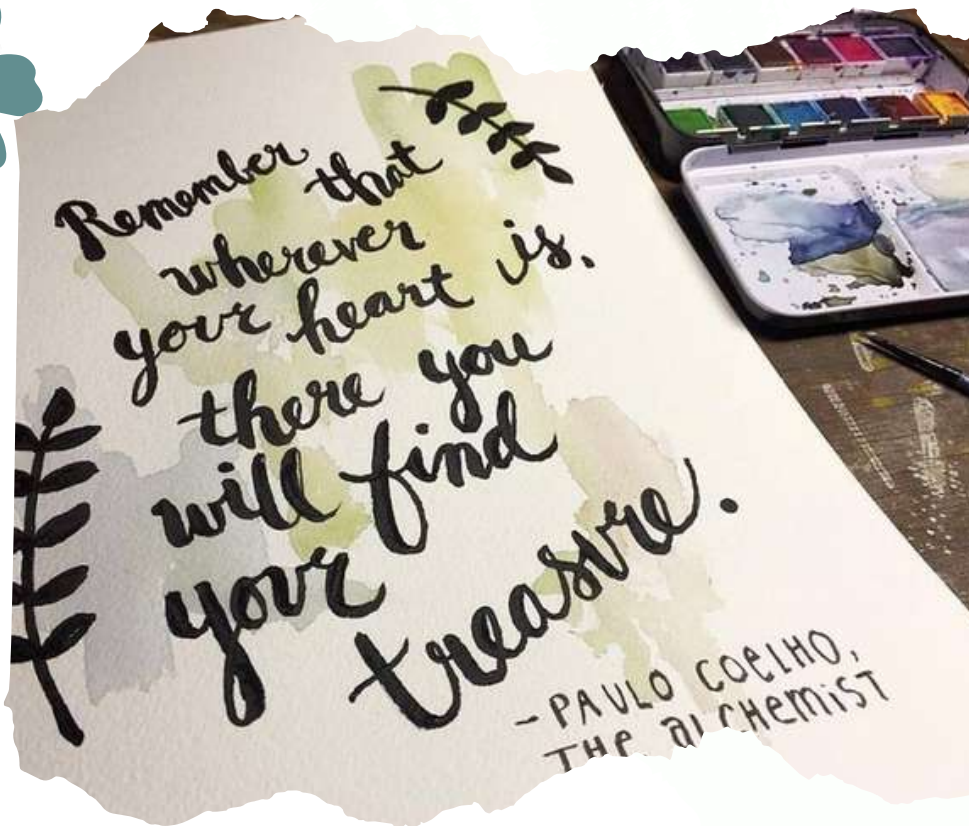 Remember that
wherever
your heart is,
there you
will find
your
treasure.
-PAULO COELHO,
THE ALCHEMIST